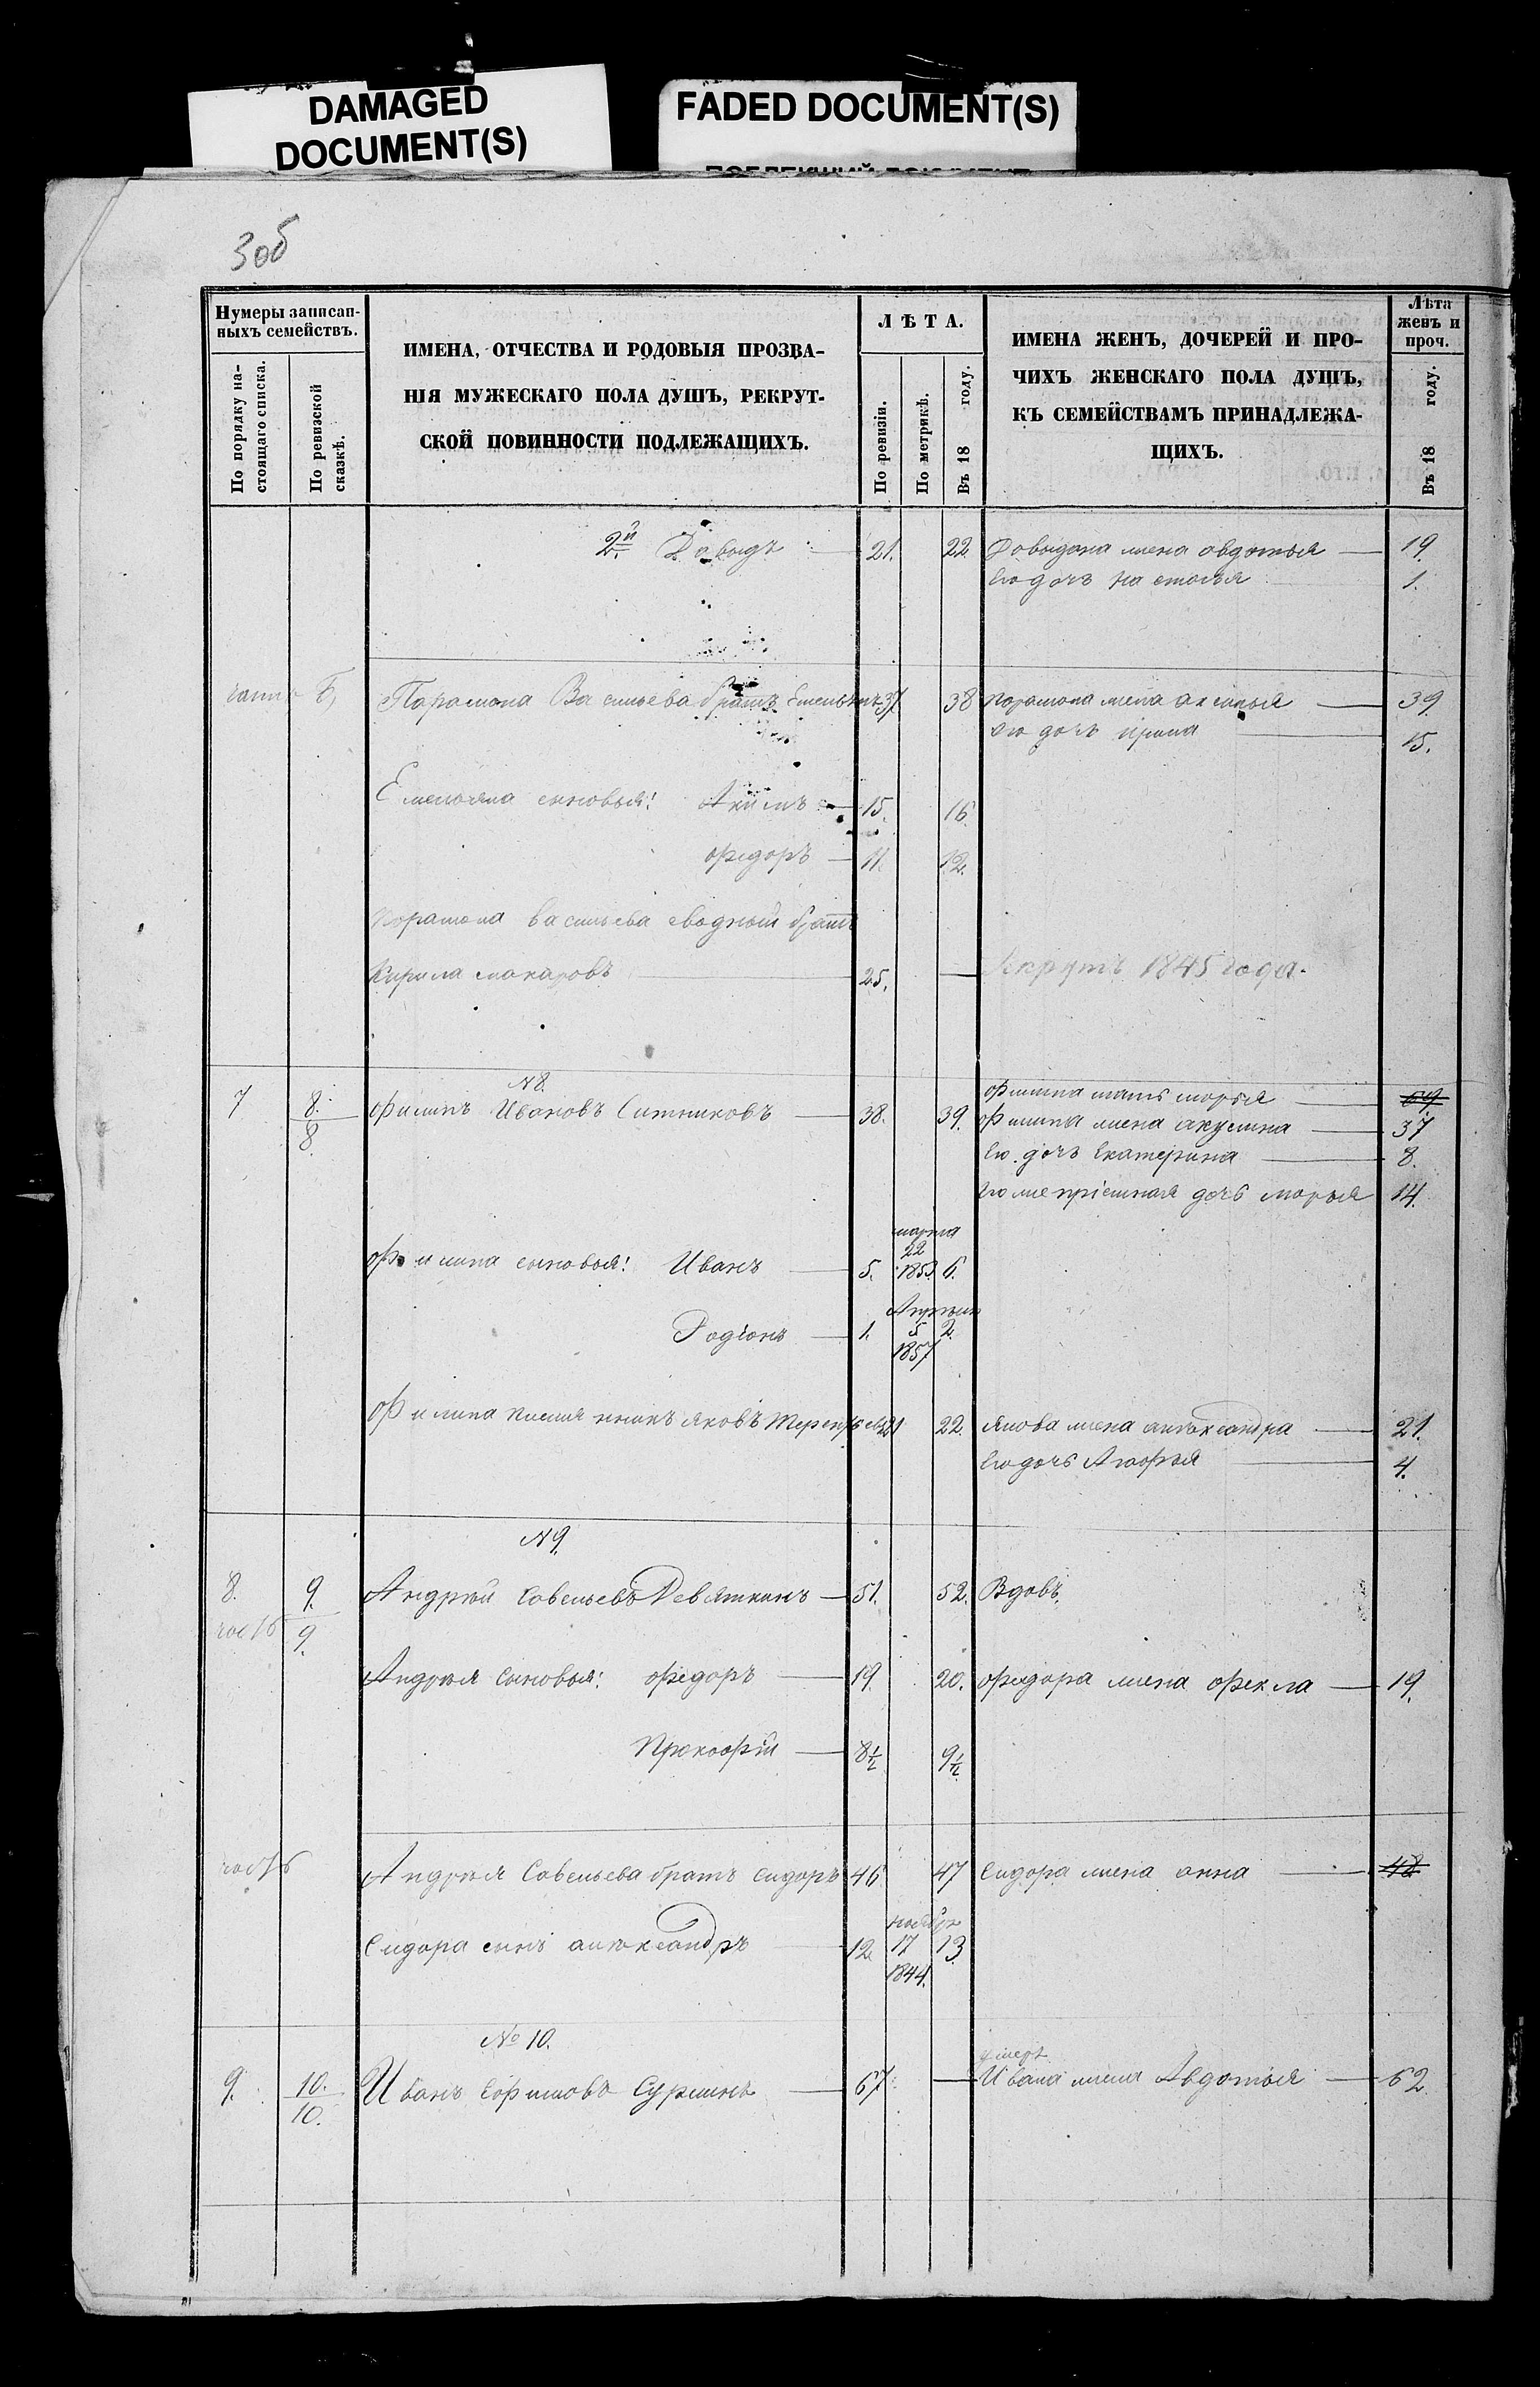 DAMAGED
DOCUMENT(S)
FADED DOCUMENT(S)
3об
Нумеры записан-
ныхъ семействъ.
По порядку на-
стоящаго списка.
По ревизской
сказкѣ.
ИМЕНА, ОТЧЕСТВА И РОДОВЫЯ ПРОЗВА-
НІЯ МУЖЕСКАГО ПОЛА ДУШЪ, РЕКРУТ-
СКОЙ ПОВИННОСТИ ПОДЛЕЖАЩИХЪ.
ЛѢТА.
По ревизіи.
По метрикѣ.
Въ 18 году.
ИМЕНА ЖЕНЪ, ДОЧЕРЕЙ И ПРО-
ЧИХЪ ЖЕНСКАГО ПОЛА ДУШЪ,
КЪ СЕМЕЙСТВАМЪ ПРИНАДЛЕЖА-
ЩИХЪ.
Лѣта
женъ и
проч.
Въ 18 году.
2й Давыдъ 21. 22 Довыдана жена овдотья 19.
Его дочь Настасья 1.
Парамона Васильева братъ Емельянъ 37 38 Порамона жена аксинья 39.
Его дочь ирина 15.
Емельяна сыновья: Акимъ 15. 16.
Федоръ 11. 12.
Порамона васильева сводный братъ
Кирила макаровъ 25. — Рекрутъ 1845 года.
N 8.
Филипа мать марья 69
7 8. Филипъ Ивановъ Ситниковъ 38. 39. Филипа жена акулина 37
8. Его дочь Екатерина 8.
Его же пріемная дочь марья 14.
марта
22
Филипа сыновья: Иванъ 5. 1853 6.
Апреля
Родіонъ 1. 5 2.
1857
Филипа племянникъ яковъ Терентьевъ 21 22. Якова жена александра 21.
Его дочь Марья 4.
N 9.
8. 9. Андрей Савельевъ Девяткинъ 51. 52. Вдовъ
часть 9.
Андрея сыновья: Федоръ 19. 20. Федора жена Фекла 19.
Прокофій 8½ 9½
часть Андрея Савельева братъ Сидоръ 46 47 Сидора жена анна 48
ноября
Сидора сынъ александръ 12. 17 13
1844.
№ 10.
умеръ
9. 10. Иванъ Ефимовъ Суринъ 67 — Ивана жена Авдотья 62.
10.